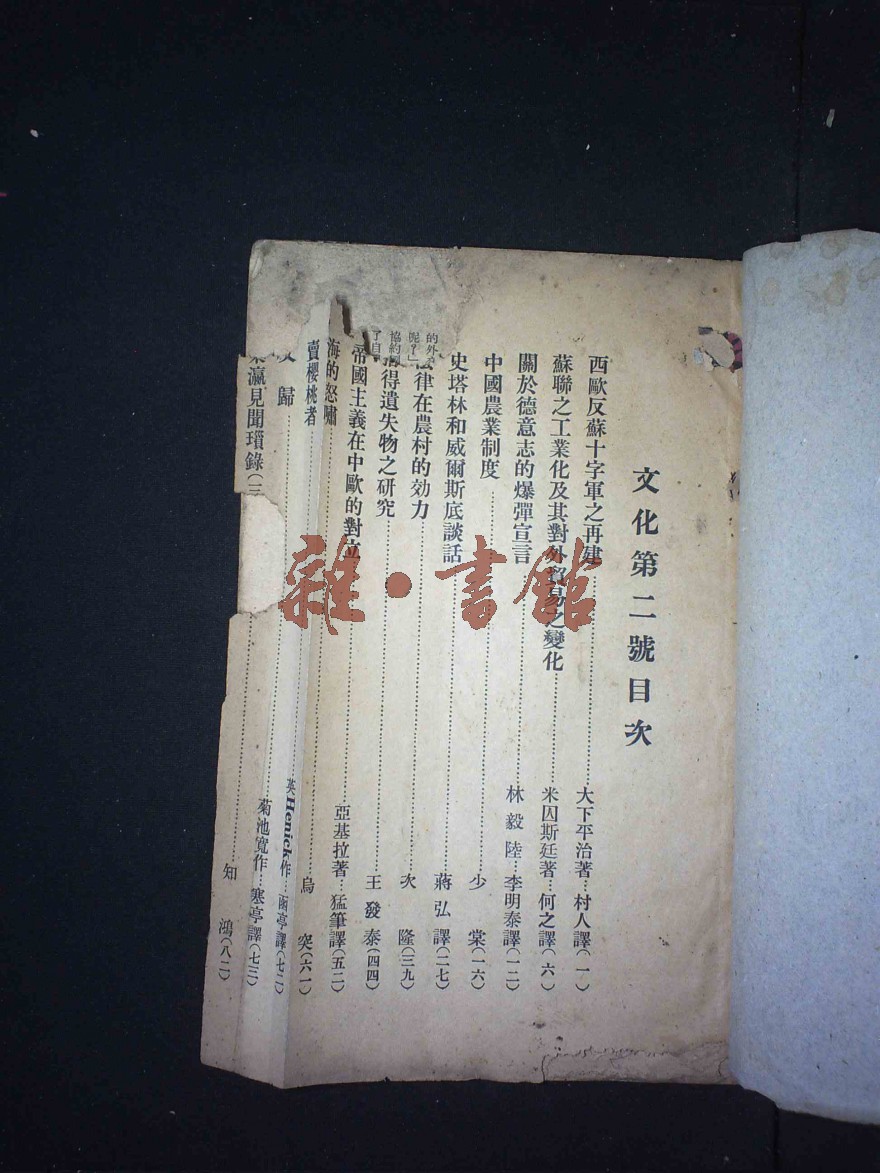 文化第二號目次
西歐反蘇十字軍之再建……大下平治著…村人譯(一)
蘇聯之工業化及其對外貿易之變化……米囚斯廷著…何之譯(六)
關於德意志的爆彈宣言……林毅陸…李明泰譯(一二)
中國農業制度……少棠(一六)
史塔林和威爾斯底談話……蔣弘譯(二七)
律在農村的効力……次隆(三九)
得遺失物之研究……王發泰(四四)
帝國主義在中歐的對立……亞基拉著…猛筆譯(五二)
海的怒嘯……烏突(六一)
賣櫻桃者……英Henick作…雨亭譯(七二)
歸……菊池寬作…寒亭譯(七三)
瀛見聞瑣錄(二……知鴻(八二)
的外
呢?」
協約
了自
雜·書館